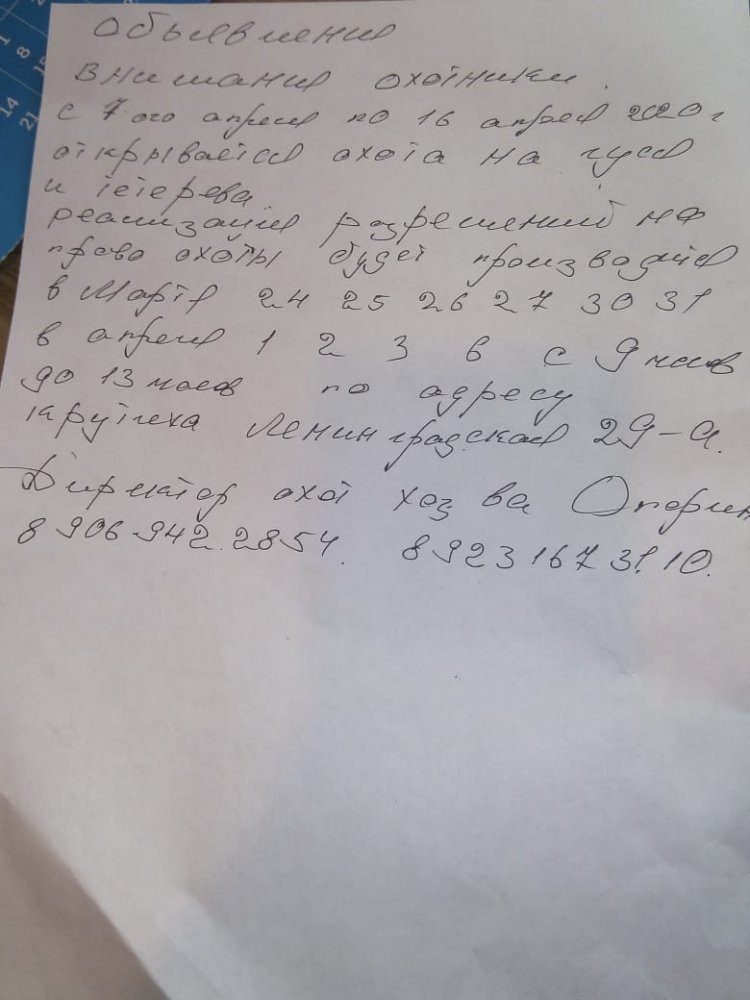 Объявления
внимания охотники.
с 7ого апреля по 16 апреля 2020г
открывается охота на гуся
и тетерева.
реализация разрешений на
право охоты будет производится
в Марте 24 25 26 27 30 31
в апреля 1 2 3 6 с 9 часов
до 13 часов по адресу
Крутиха Ленинградская 29-а.
Директор охот хоз ва Опарин
8 906 942.2854. 8 923 167 31.10.
1
8
14
21
15